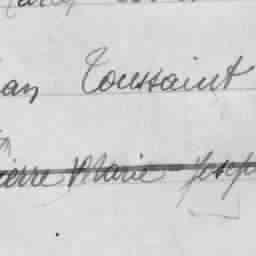 an Toussaint
ierre Marie Josep